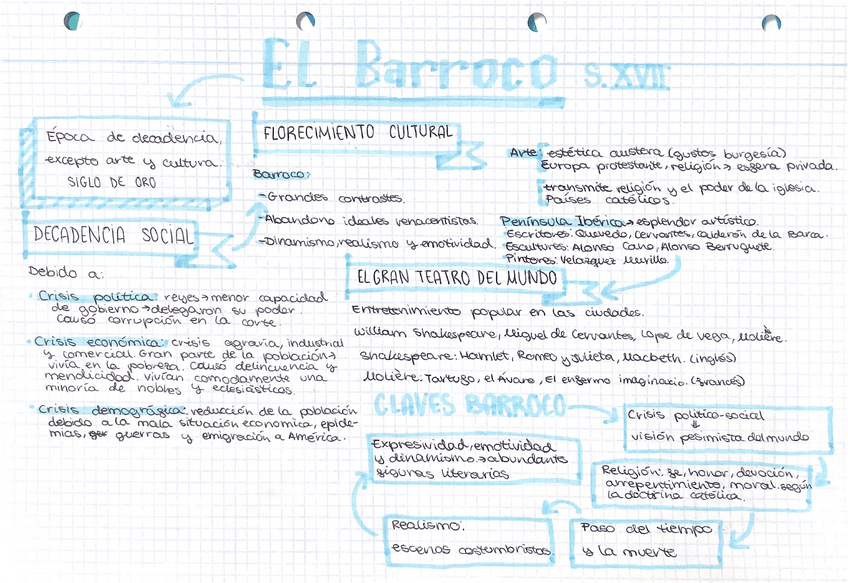 EL Barroco S.XVII
Época de decadencia,
excepto arte y cultura.
SIGLO DE ORO
DECADENCIA SOCIAL
Debido a:
· Crisis política: reyes → menor capacidad
de gobierno → delegaron su poder.
Causó corrupción en la corte.
· Crisis económica: crisis agraria, industrial
y comercial. Gran parte de la población →
vivía en la pobreza. Causó delincuencia y
mendicidad. vivían comodamente una
minoría de nobles y eclesiásticos.
· Crisis demográfica: reducción de la población
debido a la mala situación economica, epide-
mias, guerras y emigración a América.
FLORECIMIENTO CULTURAL
Barroco:
-Grandes contrastes.
-Abandono ideales renacentistas.
-Dinamismo, realismo y emotividad.
Arte: estética austera (gustos burgesía)
Europa protestante, religión → esfera privada.
transmite religión y el poder de la iglesia.
Países católicos.
Península Ibérica → esplendor artístico.
Escritores: Quevedo, Cervantes, calderón de la Barca.
Escultures: Alonso Cano, Alonso Berruguete.
Pintores: Velazquez Murillo.
EL GRAN TEATRO DEL MUNDO
Entretenimiento popular en las ciudades.
William Shakespeare, Miguel de Cervantes, Lope de vega, Molière.
Shakespeare: Hamlet, Romeo y Julieta, Macbeth. (inglés)
Molière: Tartufo, el Ávaro, El enfermo imaginario. (francés)
CLAVES BARROCO
Crisis politico-social
↓
visión pesimista del mundo
Religión: fe, honor, devoción,
arrepentimiento, moral según
la doctrina católica.
Paso del tiempo
y la muerte
Realismo:
escenas costumbristas.
Expresividad, emotividad
y dinamismo. → abundante
figuras literarias